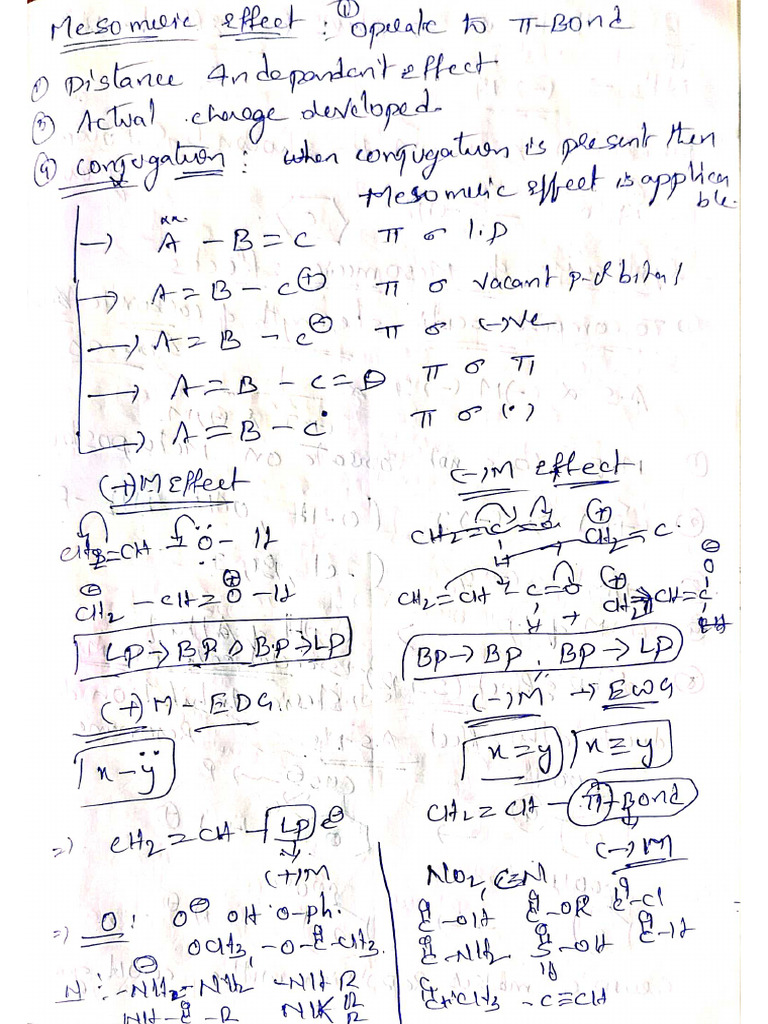 Mesomeric Effect : ① Operate to π-Bond
② Distance Independent effect
③ Actual charge developed
④ conjugation : when conjugation is present then
Mesomeric effect is applicable.
→ A - B = C π σ l.p
→ A = B - C⊕ π σ vacant p-orbital
→ A = B - C⊖ π σ (-)ve
→ A = B - C = D π σ π
→ A = B - C• π σ (•)
(+)M Effect
CH2=CH - Ö - H
⊖CH2 - CH = O⊕ - H
LP → BP , BP → LP
(+)M - EDG
x - ÿ
=) CH2 = CH - LP e⊖
(+)M
=) O : O⊖ OH O-ph.
OCH3, -O-C-CH3
N : -NH⊖ -NH2 -NHR
NH-C-R NRR
(-)M Effect
CH2=C=O ⊕CH2=C
CH2=CH - C=O ⊕CH2-CH=C-O⊖
H
BP → BP , BP → LP
(-)M → EWG
x=y x≡y
CH2=CH - π-Bond
(-)M
NO2, C≡N
C-OH C-OR C-Cl
C-NH2 S-OH C-H
-C≡CH